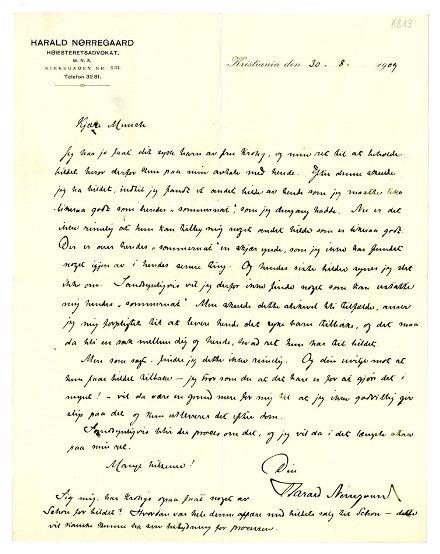 K 819
HARALD NØRREGAARD
HØIESTERETSADVOKAT.
M. N. S.
KIRKEGADEN NR.
Telefon 3281.
Kristiania den 30 - 8. - 1909
Kjære Munch
Jeg har jo faaet det syke barn av fru Krohg, og min ret til at beholde
bildet beror derfor kun paa min avtale med hende. Efter denne skulde
jeg ha bildet, indtil jeg fandt et andet bilde av hende som jeg maatte like
likesaa godt som hendes "sommernat", som jeg dengang hadde. Nu er det
ikke rimelig at hun kan tilby mig noget andet bilde som er likesaa godt.
Der er over hendes "sommernat" en skjær ynde, som jeg ikke har fundet
noget igjen av i hendes senere ting. Og hendes siste bilder synes jeg slet
ikke om. Sandsynligvis vil jeg derfor ikke finde noget som kan erstatte
mig hendes "sommernat". Men skulde dette allikevel bli tilfældet, anser
jeg mig forpligtet til at levere hende det syke barn tilbake, og det maa
da bli en sak mellem dig og hende, hvad ret hun har til bildet.
Men som sagt, finder jeg dette ikke rimelig. Og din uvilje mot at
hun faar bildet tilbake - jeg tror som du at det bare er for at gjøre det i
mynt! - vil da være en grund mere for mig til at jeg ikke godvillig gir
slip paa det og kun utleverer det efter dom.
Sandsynligvis blir der proces om det, og jeg vil da i det længste holde
paa min ret.
Mange hilsener!
Din
Harald Nørregaard
Sig mig, har Krohgs ogsaa faaet noget av
Schou for bildet? Hvordan var hele denne affære med bildets salg til Schou - dette
vil kanske kunne ha sin betydning for processen.